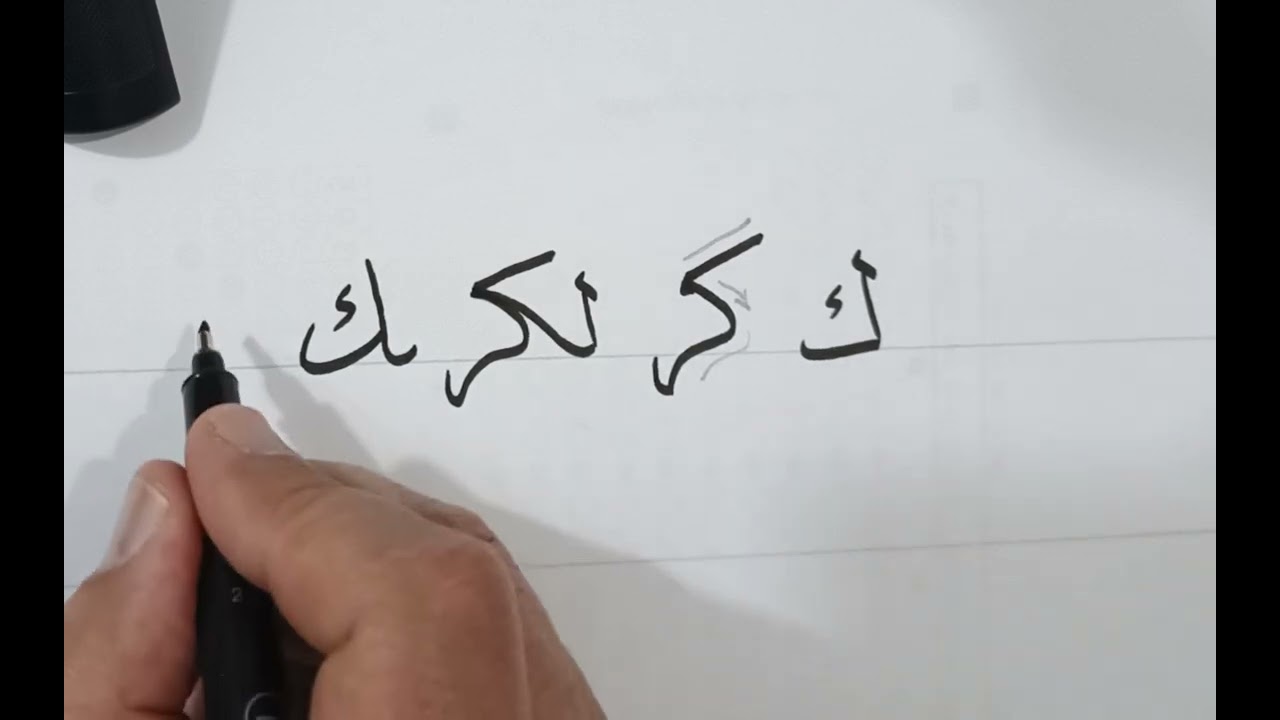 ك كر لكر ٮك